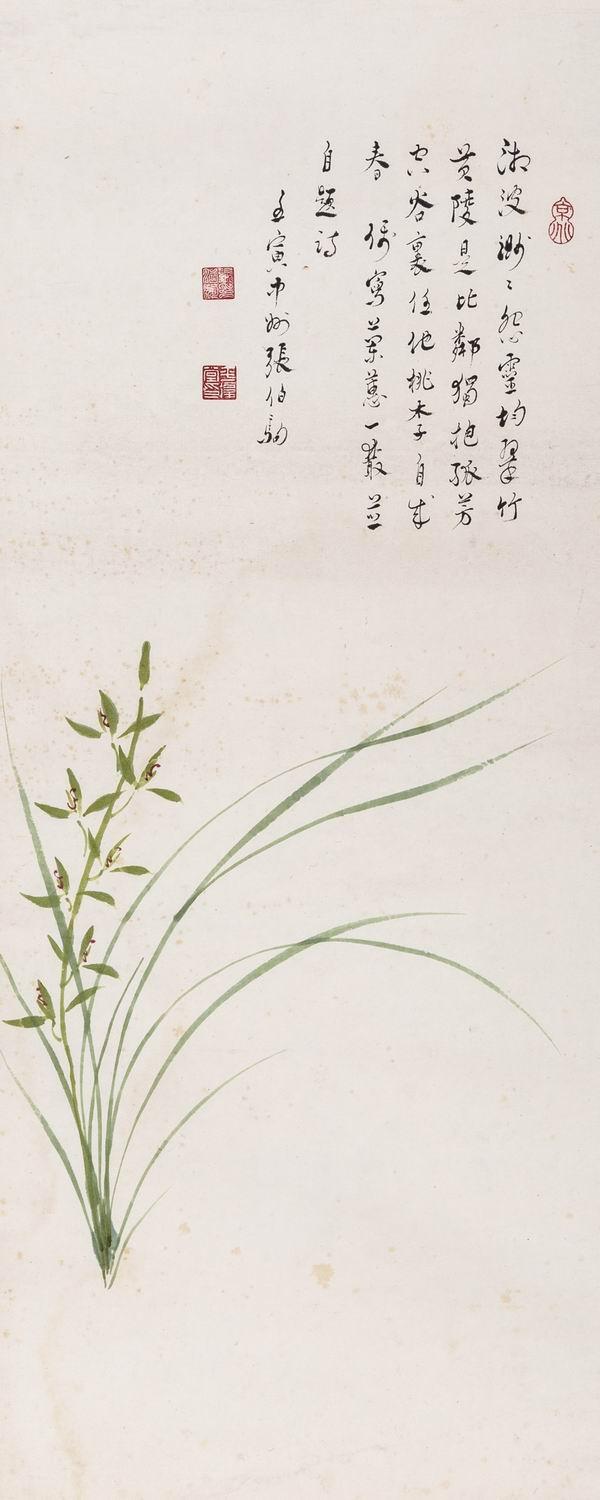 湘波渺々怨靈均翠竹
黄陵是比鄰獨抱孤芳
空谷裏任他桃李自成
春 偶寫蘭蕙一叢並
自題詩
壬寅中州張伯駒